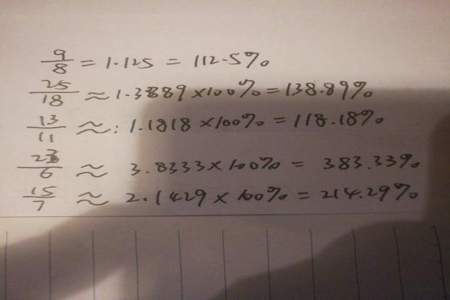 9/8 = 1.125 = 112.5%
25/18 ≈ 1.3889×100% = 138.89%
13/11 ≈: 1.1818×100% = 118.18%
23/6 ≈ 3.8333×100% = 383.33%
15/7 ≈ 2.1429×100% = 214.29%